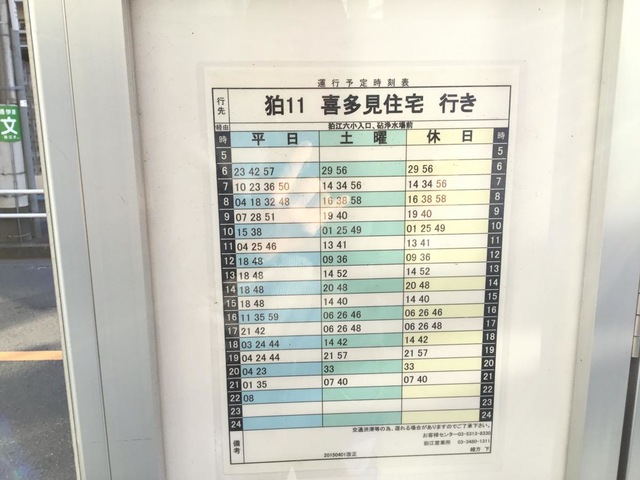 運行予定時刻表
行先 狛11 喜多見住宅 行き
経由 狛江六小入口、砧浄水場前
時 平日 土曜 休日 時
5 5
6 23 42 57 29 56 29 56 6
7 10 23 36 50 14 34 56 14 34 56 7
8 04 18 32 48 16 38 58 16 38 58 8
9 07 28 51 19 40 19 40 9
10 15 38 01 25 49 01 25 49 10
11 04 25 46 13 41 13 41 11
12 18 48 09 36 09 36 12
13 18 48 14 52 14 52 13
14 18 48 20 48 20 48 14
15 18 48 14 40 14 40 15
16 11 35 59 06 26 46 06 26 46 16
17 21 42 06 26 48 06 26 48 17
18 03 24 44 14 42 14 42 18
19 04 24 44 21 57 21 57 19
20 04 23 33 33 20
21 01 35 07 40 07 40 21
22 08 22
23 23
24 24
備考 交通渋滞等の為、遅れる場合がありますのでご了承下さい。
お客様センター03-5313-8330
狛江営業所 03-3480-1311
20150401改正
文